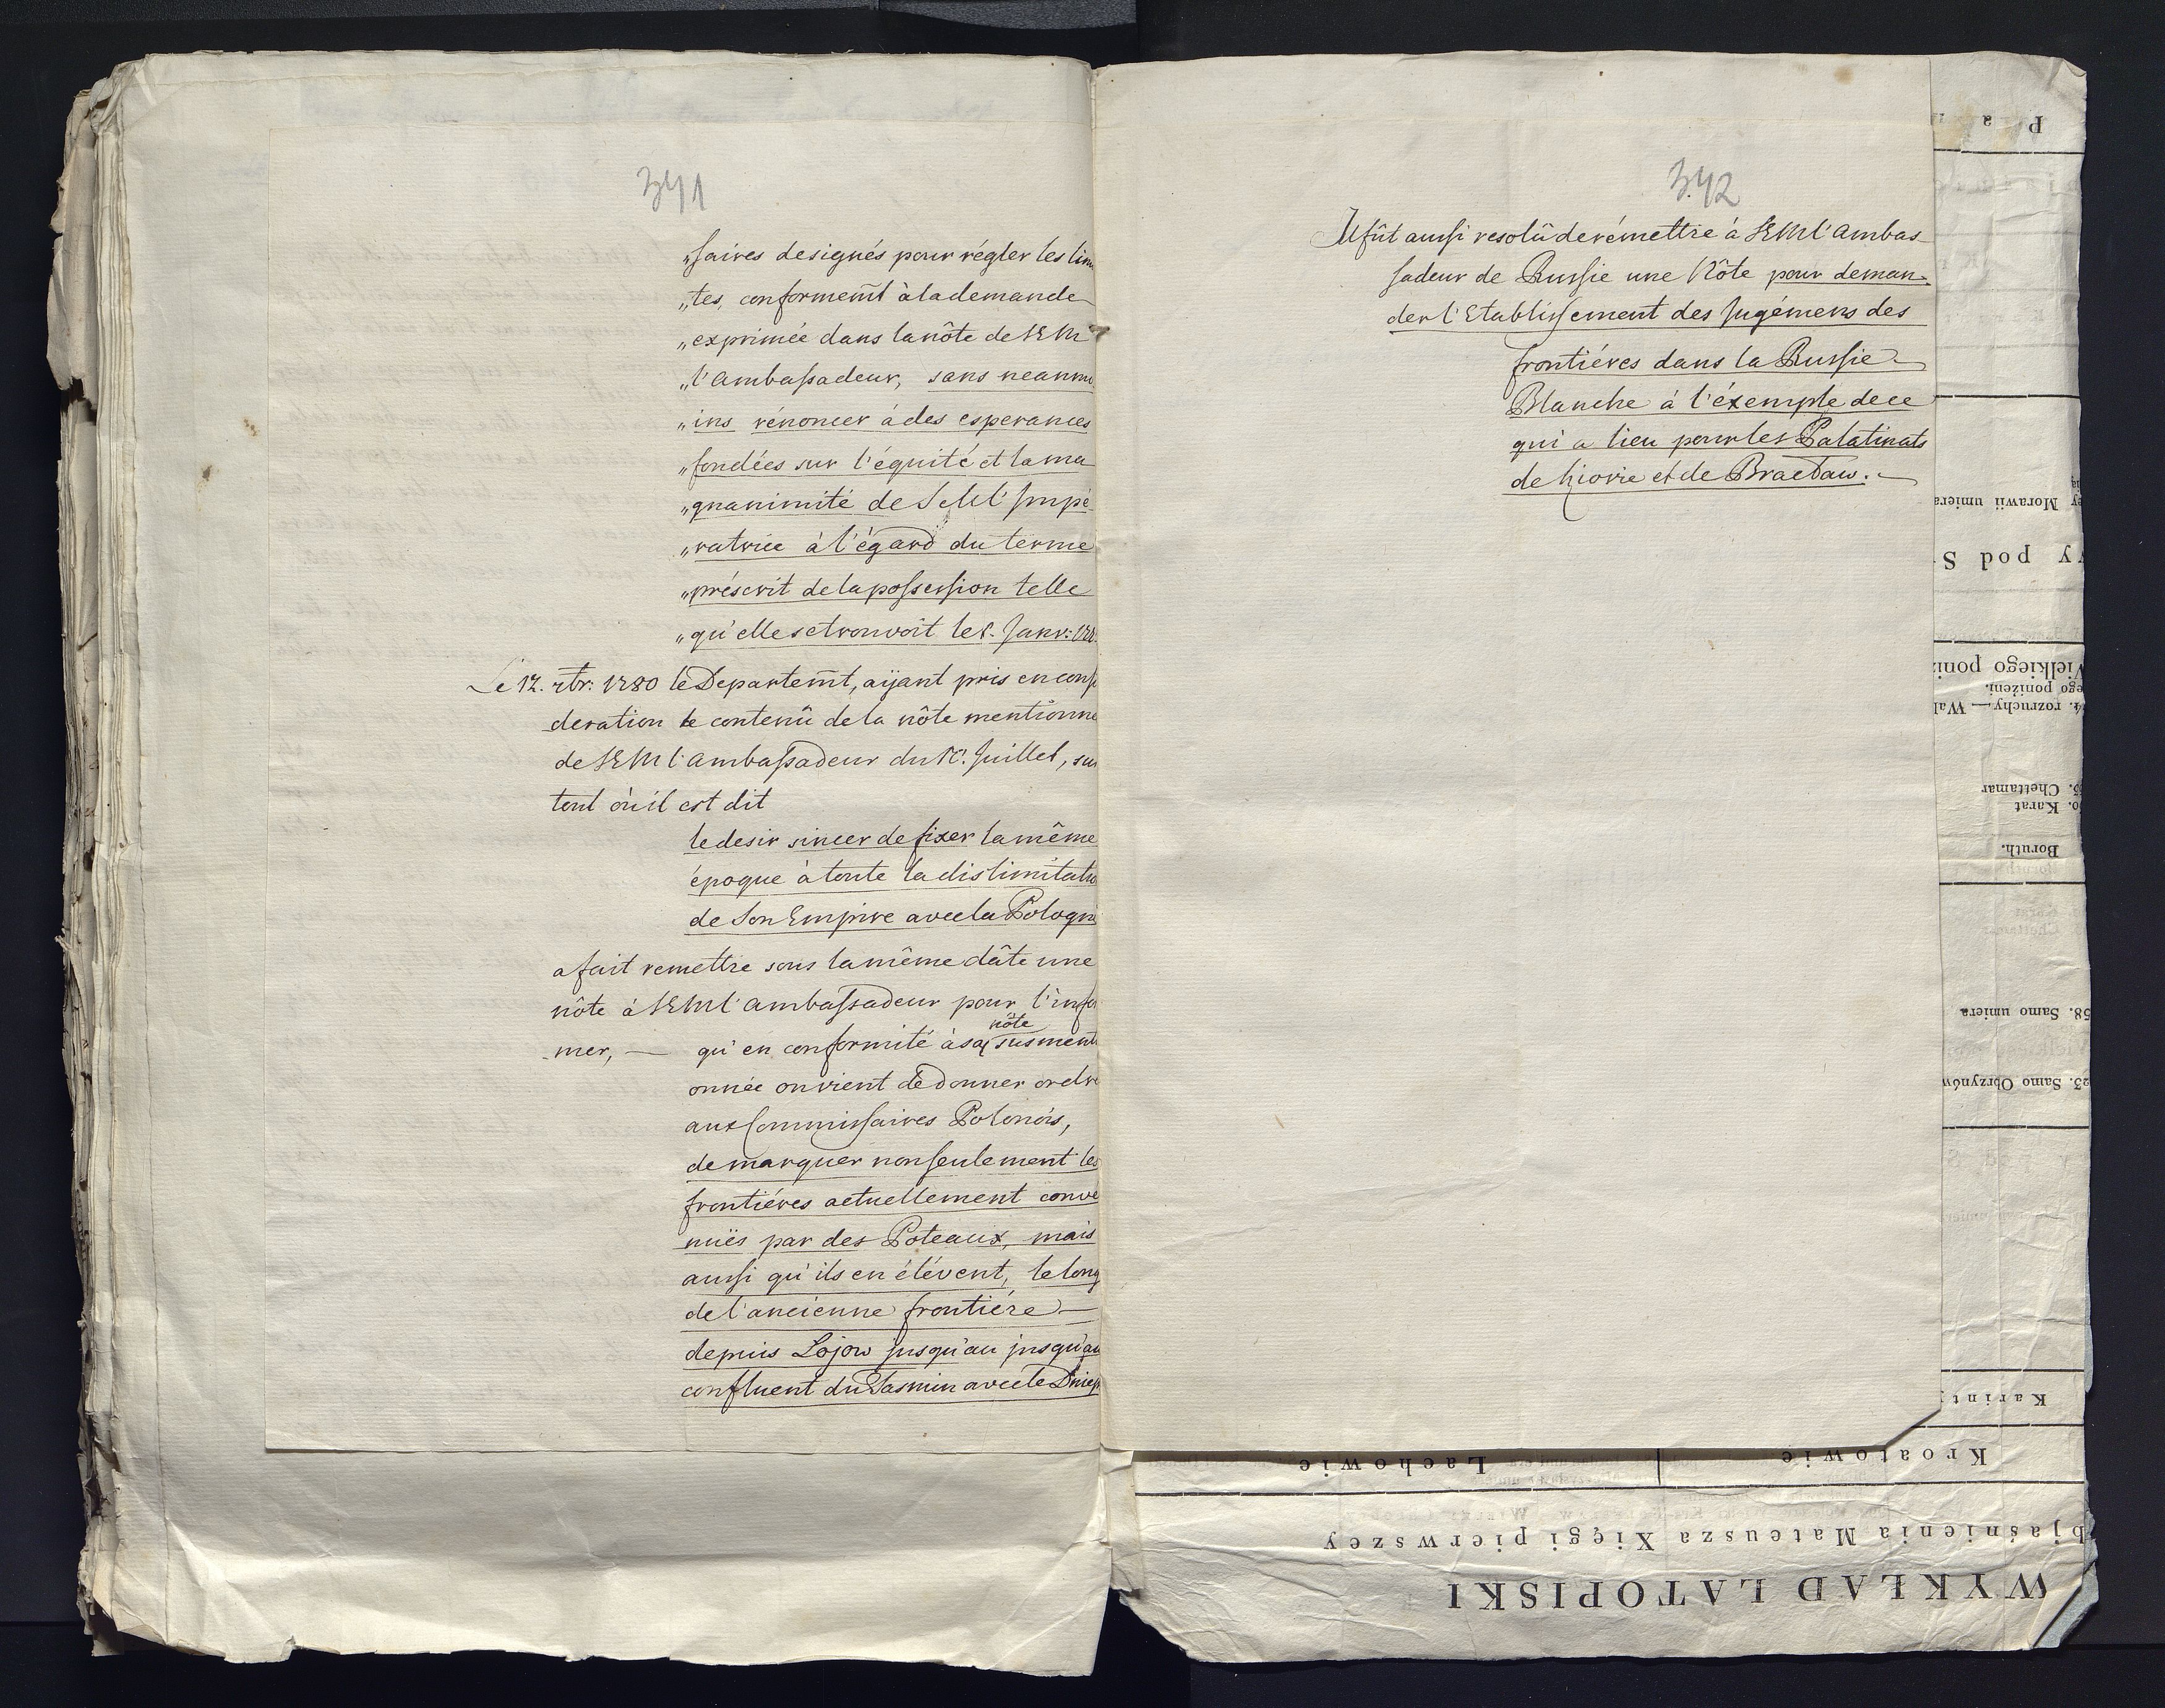 341
„saires designés pour régler les lim
„tes, conformemt à la demande
„exprimée dans la nôte de S E M
„l'Ambassadeur, sans neanmo
„ins rénoncer à des esperances
„fondées sur l'équité et la ma
„gnanimité de S M l'Impé
„ratrice à l'égard du terme
„préscrit de la possession telle
„qu'elle se trouvoit le Janv:
Le 12. 1780 le Departemt, aijant pris en consi
deration le contenû de la nôte mentionné
de S E M l'Ambassadeur du Juillet, sur
tout où il est dit
le desir sincer de fixer la même
époque à toute la dislimitatio
de Son Empire avec la Pologne
a fait remettre sous la même dâte une
nôte à S E M l'Ambassadeur pour l'infor
mer, — qu'en conformité à sa nôte susmenti
onnée on vient de donner ordre
aux Commissaires Polonois,
de marquer non seulement les
frontiéres actuellement conve
nües par des Poteaux, mais
aussi qu'ils en élévent, le long
de l'ancienne frontiére —
depuis Lojow jusqu'au jusqu'au
confluent du Tasmin avec le Dniep
342
Il fût aussi resolû de rémettre à S E M l'Ambas-
sadeur de Russie une Nôte pour deman-
der l'Etablissement des Jugémens des
frontiéres dans la Russie
Blanche à l'éxemple de ce
qui a lieu pour les Palatinats
de Kiovie et de Braclaw. —
P a
y Morawii umiera
y pod S
Wielkiego poniż
ego poniżeni.
4. rozruchy.— Wal
Chettamar
0. Karat
Boruth.
58. Samo umiera
23. Samo Obrzynów
Karint
Kroatowie
Lachowie
bjaśnienia Mateusza Xięgi pierwszey
WYKŁAD LATOPISKI